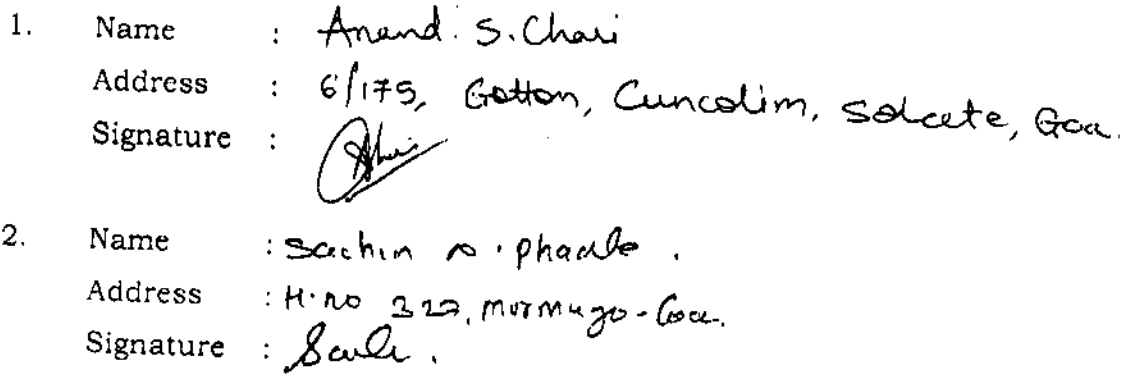 1. Name : Anand. S. Chari
Address : 6/175, Gotton, Cuncolim, Salcete, Goa.
Signature :
2. Name : Sachin s. phadte.
Address : H. no 327, Mormugo - Goa.
Signature :